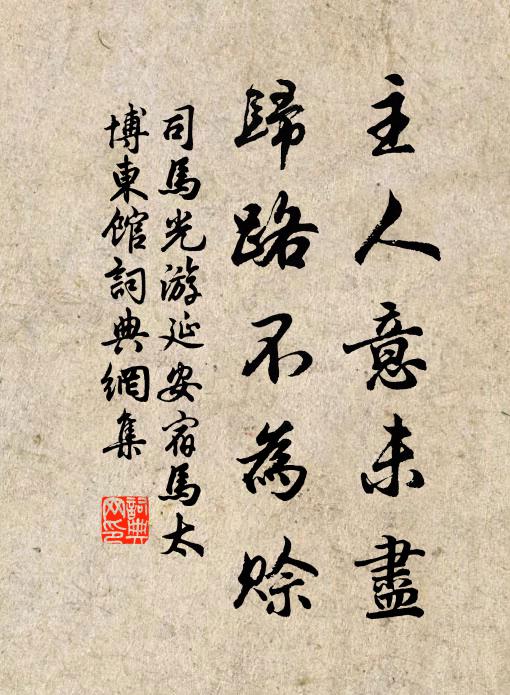 主人意未盡
歸路不為賒
司馬光游延安宿馬太
博東館詞典網集
詞典
网印